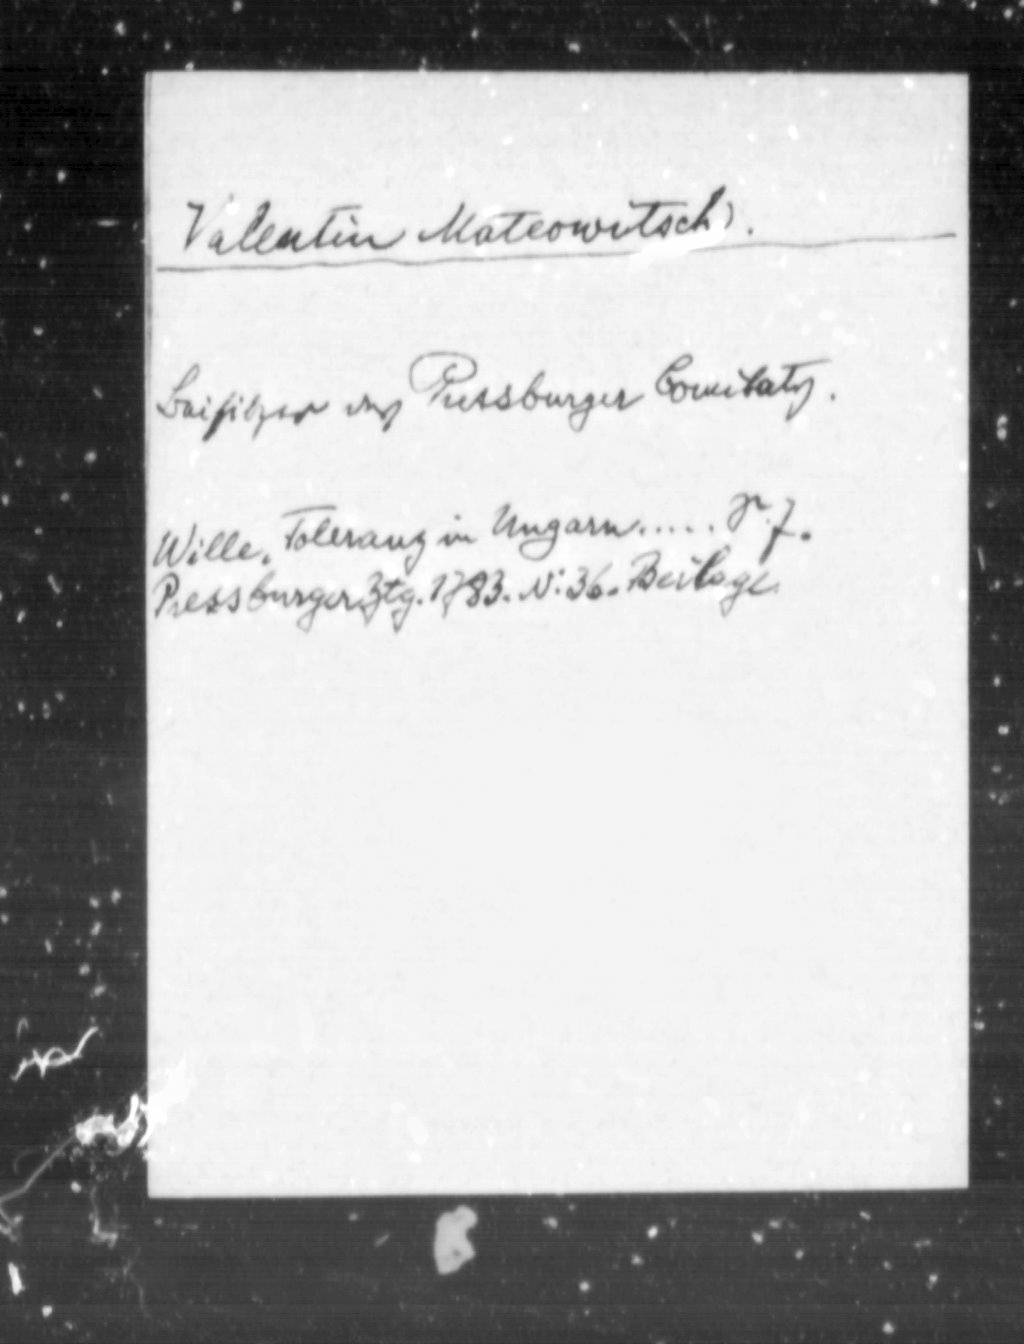 Valentin Mateowitsch.
Beisitzer des Pressburger Comitats.
Wille, Toleranz in Ungarn.....
Pressburger Ztg. 1783. N: 36. Beilage.